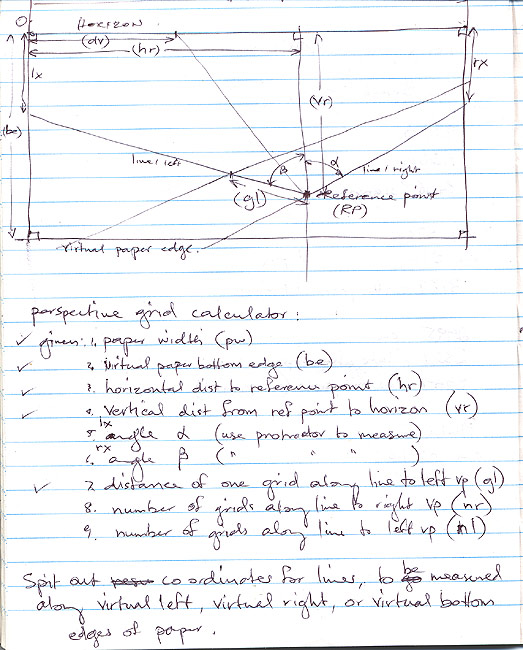 O HORIZON
(dv)
(hr)
lx
rx
(vr)
(be)
line, left
β
α
line, right
(gl)
Reference point
(RP)
virtual paper edge.
perspective grid calculator:
✓ given: 1. paper width (pw)
✓ 2. virtual paper bottom edge (be)
✓ 3. horizontal dist to reference point (hr)
✓ 4. vertical dist from ref point to horizon (vr)
lx
5. angle α (use protractor to measure)
rx
6. angle β (" " " )
✓ 7. distance of one grid along line to left vp (gl)
8. number of grids along line to right vp (nr)
9. number of grids along line to left vp (nl)
Spit out coordinates for lines, to be measured
along virtual left, virtual right, or virtual bottom
edges of paper.